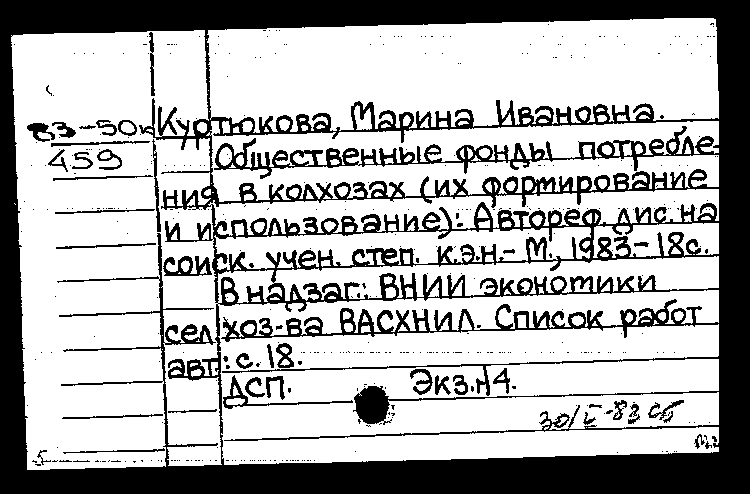 83-50к Куртюкова, Марина Ивановна.
459 Общественные фонды потребле-
ния в колхозах (их формирование
и использование): Автореф. дис. на
соиск. учен. степ. к.э.н.- М., 1983.-18с.
В надзаг.: ВНИИ экономики
сел. хоз-ва ВАСХНИЛ. Список работ
авт.: с. 18.
ДСП. Экз.№4.
5